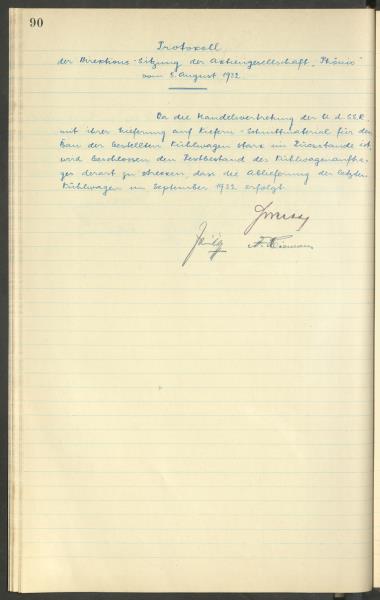 90
Protokoll
der Direktions-Sitzung der Aktiengesellschaft „Phönix"
vom 5. August 1932.
Da die Handelsvertretung der U.d.S.S.R.
mit ihrer Lieferung auf Kiefern-Schnittmaterial für den
Bau der bestellten Kühlwagen stark im Rückstande ist
wird beschlossen den Restbestand des Kühlwagenauftra-
ges derart zu strecken, dass die Ablieferung der letzten
Kühlwagen im September 1932 erfolgt.